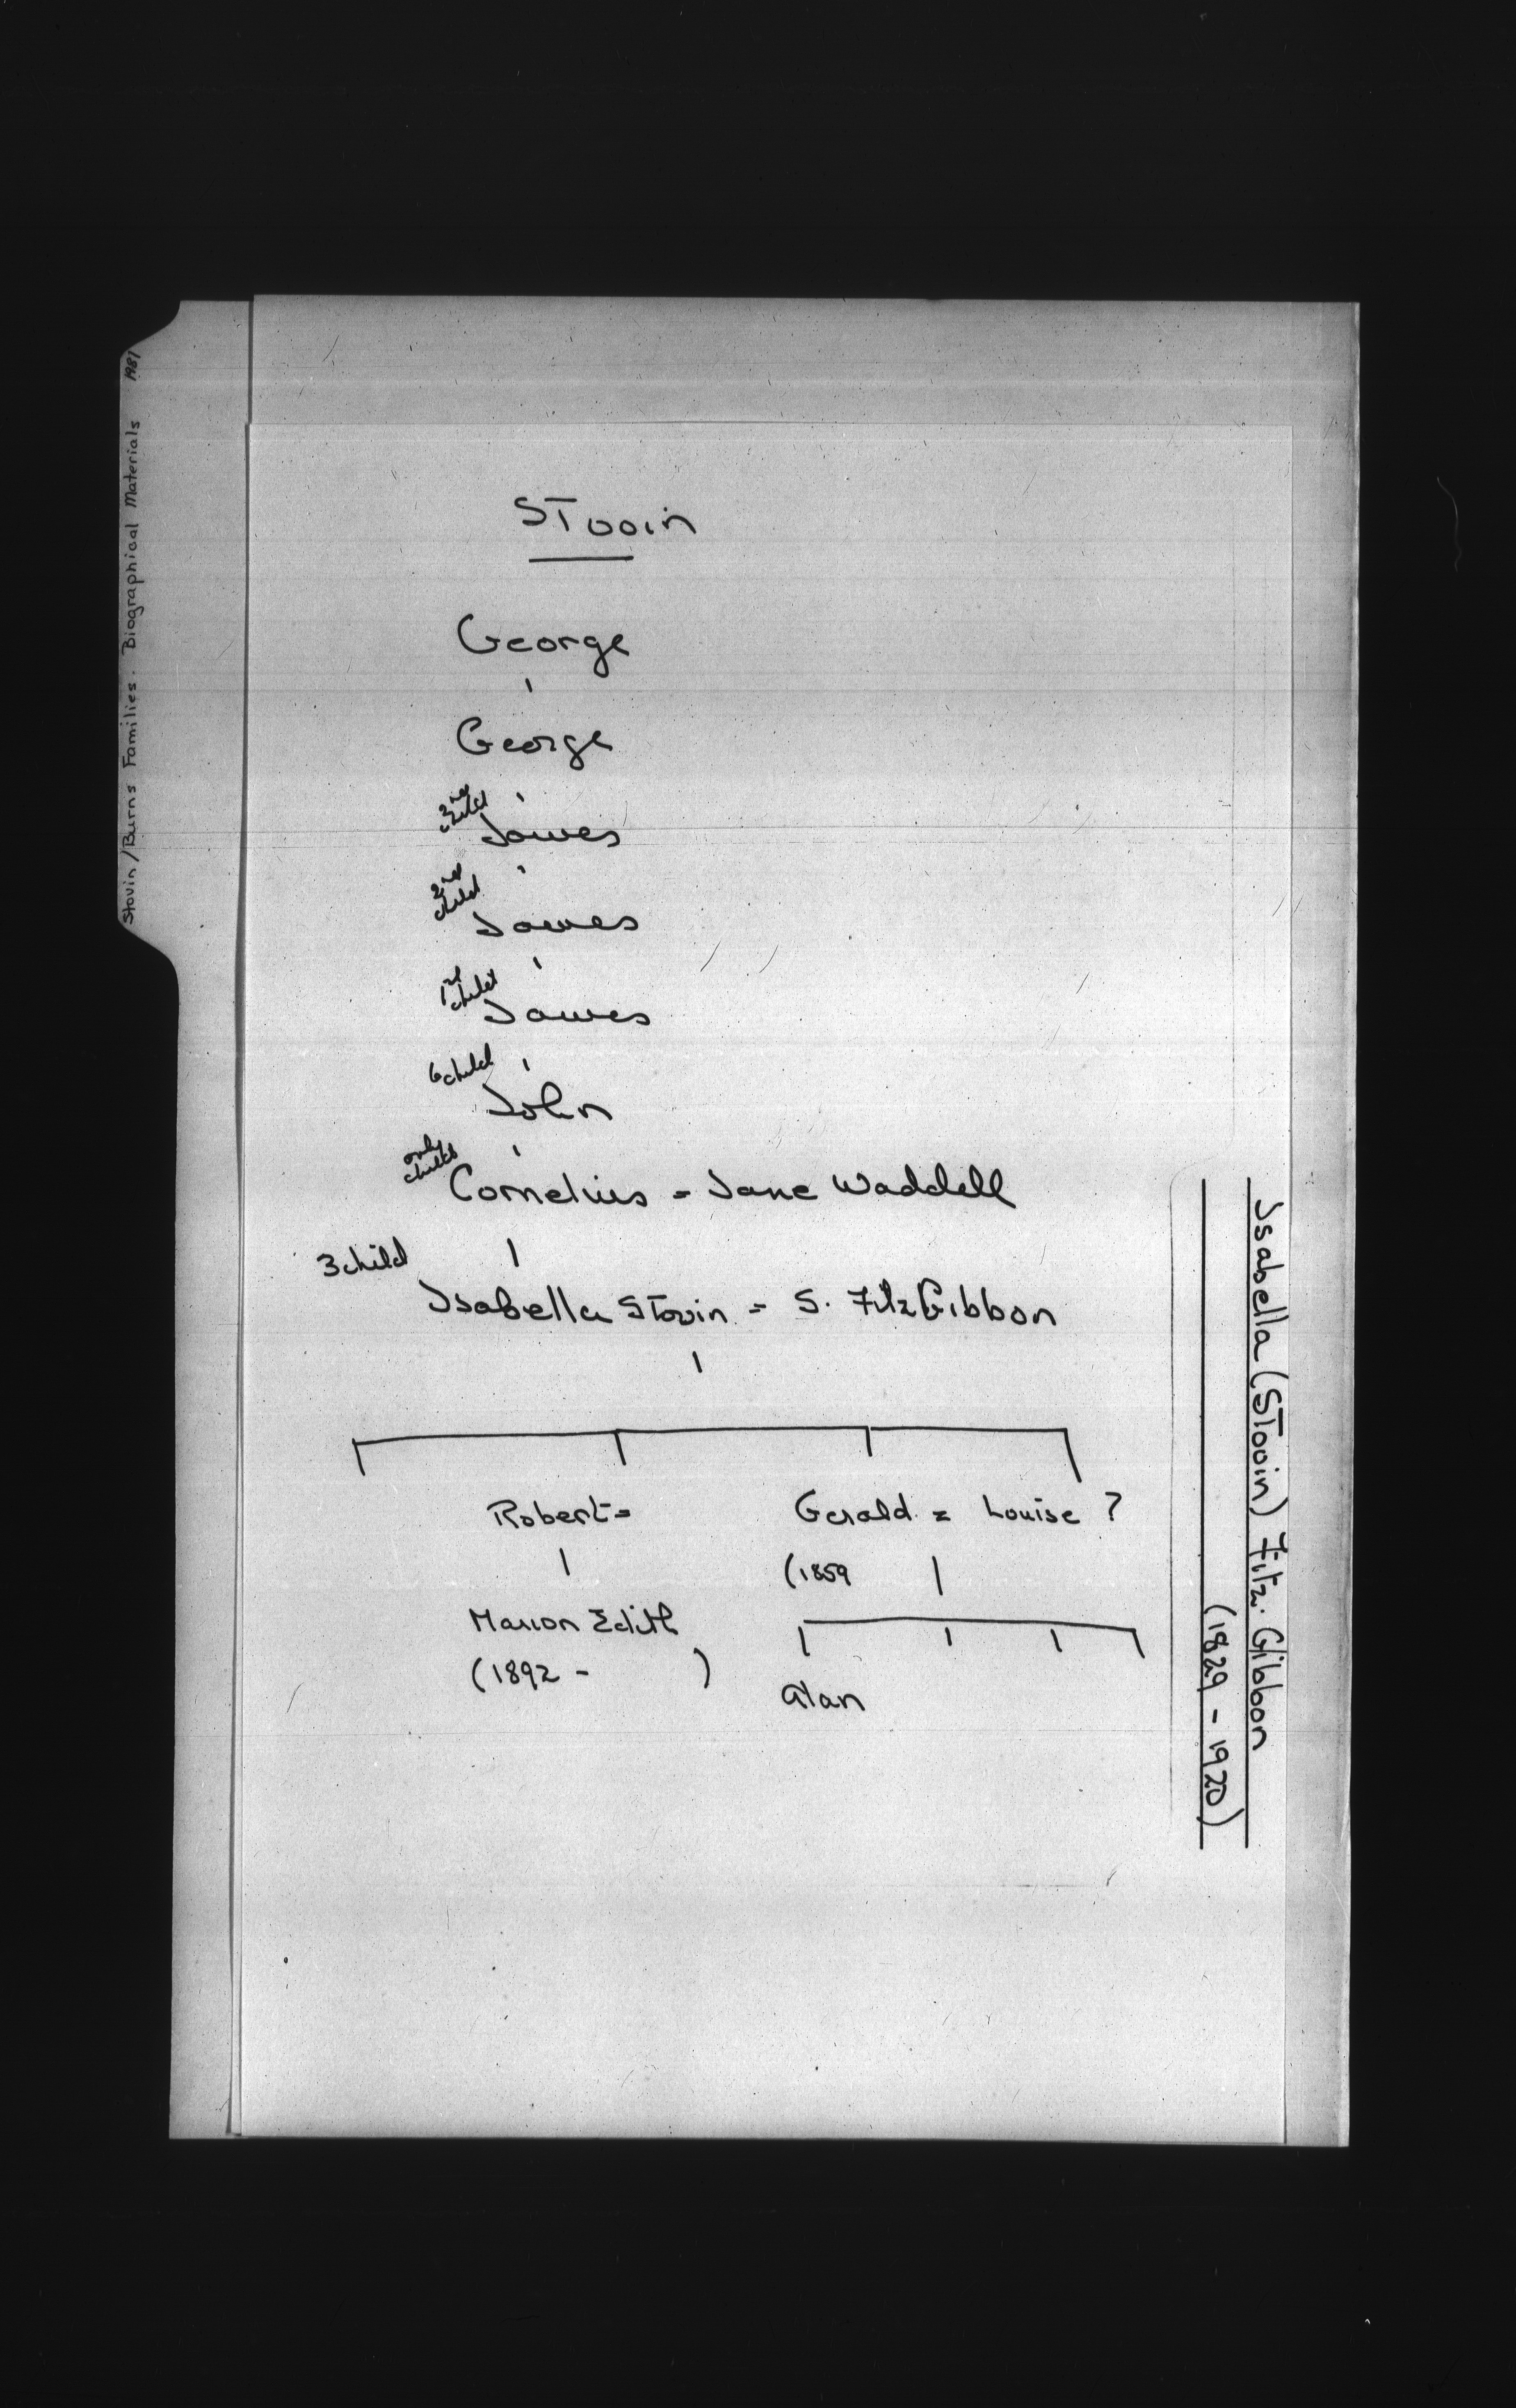 Stovin/Burns Families. Biographical Materials 1981
STovin
George
George
2nd child
James
2nd child
James
child
James
6 child
John
only child
Cornelius = Jane Waddell
3 child
Isabella STovin = S. FitzGibbon
Robert = Gerald = Louise ?
(1859
Marion Edith
(1892 - )
Alan
Isabella (STovin) Fitz. Gibbon
(1829 - 1920)